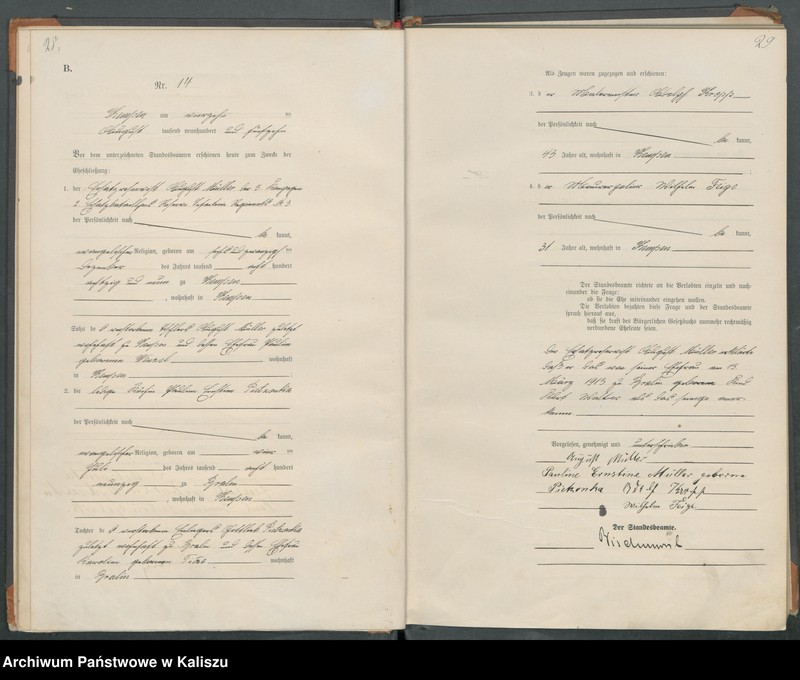 28.
B.
Nr. 14
Kempen am vierzehn ten
August tausend neunhundert und fünfzehn
Vor dem unterzeichneten Standesbeamten erschienen heute zum Zwecke der
Eheschließung:
1. der Ersatzreservist August Müller der 3. Kompagnie
2. Ersatzbataillons Reserve Infanterie Regiments
der Persönlichkeit nach
be kannt,
evangelischer Religion, geboren am
Dezember des Jahres tausend acht hundert
achtzig und neun zu Kempen
, wohnhaft in Kempen
Sohn de s verstorbenen August Müller zuletzt
wohnhaft zu Kempen und dessen Ehefrau
geborenen wohnhaft
in Kempen
2. die ledige Pauline Ernstine Pietronka
der Persönlichkeit nach
be kannt,
evangelischer Religion, geboren am
des Jahres tausend acht hundert
neunzig zu Bralin
, wohnhaft in Kempen
Tochter de s verstorbenen Gottlieb Pietronka
zuletzt wohnhaft zu Bralin und dessen Ehefrau
Karoline geborenen wohnhaft
in Bralin
29
Als Zeugen waren zugezogen und erschienen:
3. d er Malermeister Adolf Kropp
der Persönlichkeit nach
be kannt,
43 Jahre alt, wohnhaft in Kempen
4. d er Maurerpolier Wilhelm Feige
der Persönlichkeit nach
be kannt,
31 Jahre alt, wohnhaft in Kempen
Der Standesbeamte richtete an die Verlobten einzeln und nach-
einander die Frage:
ob sie die Ehe miteinander eingehen wollen.
Die Verlobten bejahten diese Frage und der Standesbeamte
sprach hierauf aus,
daß sie kraft des Bürgerlichen Gesetzbuchs nunmehr rechtmäßig
verbundene Eheleute seien.
Der Ersatzreservist August Müller erklärte
daß er das von seiner Ehefrau am 15.
März 1913 zu Bralin geborene Kind
Walter als das seinige aner-
kenne.
Vorgelesen, genehmigt und unterschrieben
August Müller
Pauline Ernstine Müller geborene
Pietronka Adolf Kropp
Wilhelm Feige
Der Standesbeamte.
Archiwum Państwowe w Kaliszu